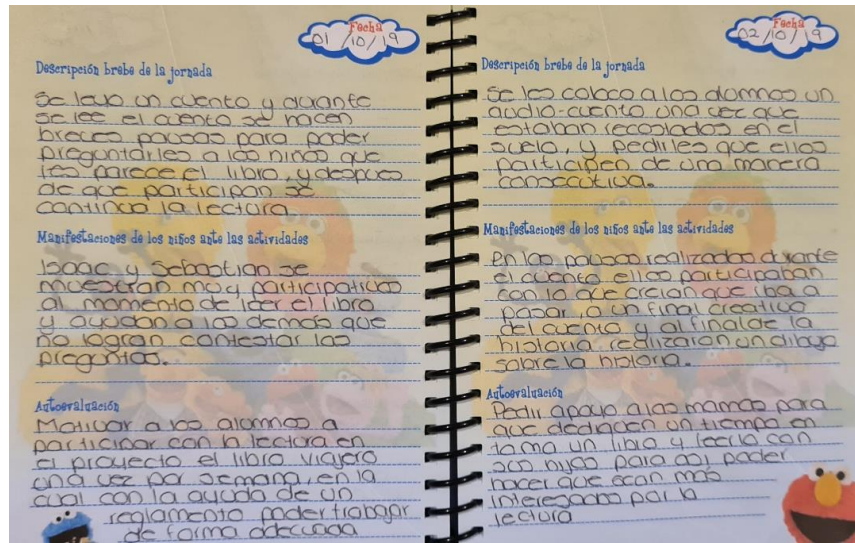 Fecha
01/10/19
Descripción brebe de la jornada
Se leyo un cuento y durante
se lee el cuento se hacen
breves pausas para poder
preguntarles a los niños que
les parece el libro, y despues
de que participan se
continua la lectura
Manifestaciones de los niños ante las actividades
Isaac y Sebastian se
muestran muy participativos
al momento de leer el libro
y ayudan a los demas que
no logran contestar las
preguntas.
Autoevaluación
Motivar a los alumnos a
participar con la lectura en
el proyecto el libro viajero
una vez por semana, en la
cual con la ayuda de un
reglamento poder trabajar
de forma adecuada
Fecha
02/10/19
Descripción brebe de la jornada
Se les coloco a los alumnos un
audio-cuento una vez que
estaban recostados en el
suelo, y pedirles que ellos
participen de una manera
consecutiva.
Manifestaciones de los niños ante las actividades
En las pausas realizadas durante
el cuento ellos participaban
con lo que creian que iba a
pasar a un final creativo
del cuento y al final de la
historia realizaron un dibujo
sobre la historia.
Autoevaluación
Pedir apoyo a las mamas para
que dediquen un tiempo en
toma un libro y leerlo con
sus hijos para asi poder
hacer que sean mas
interesados por la
lectura